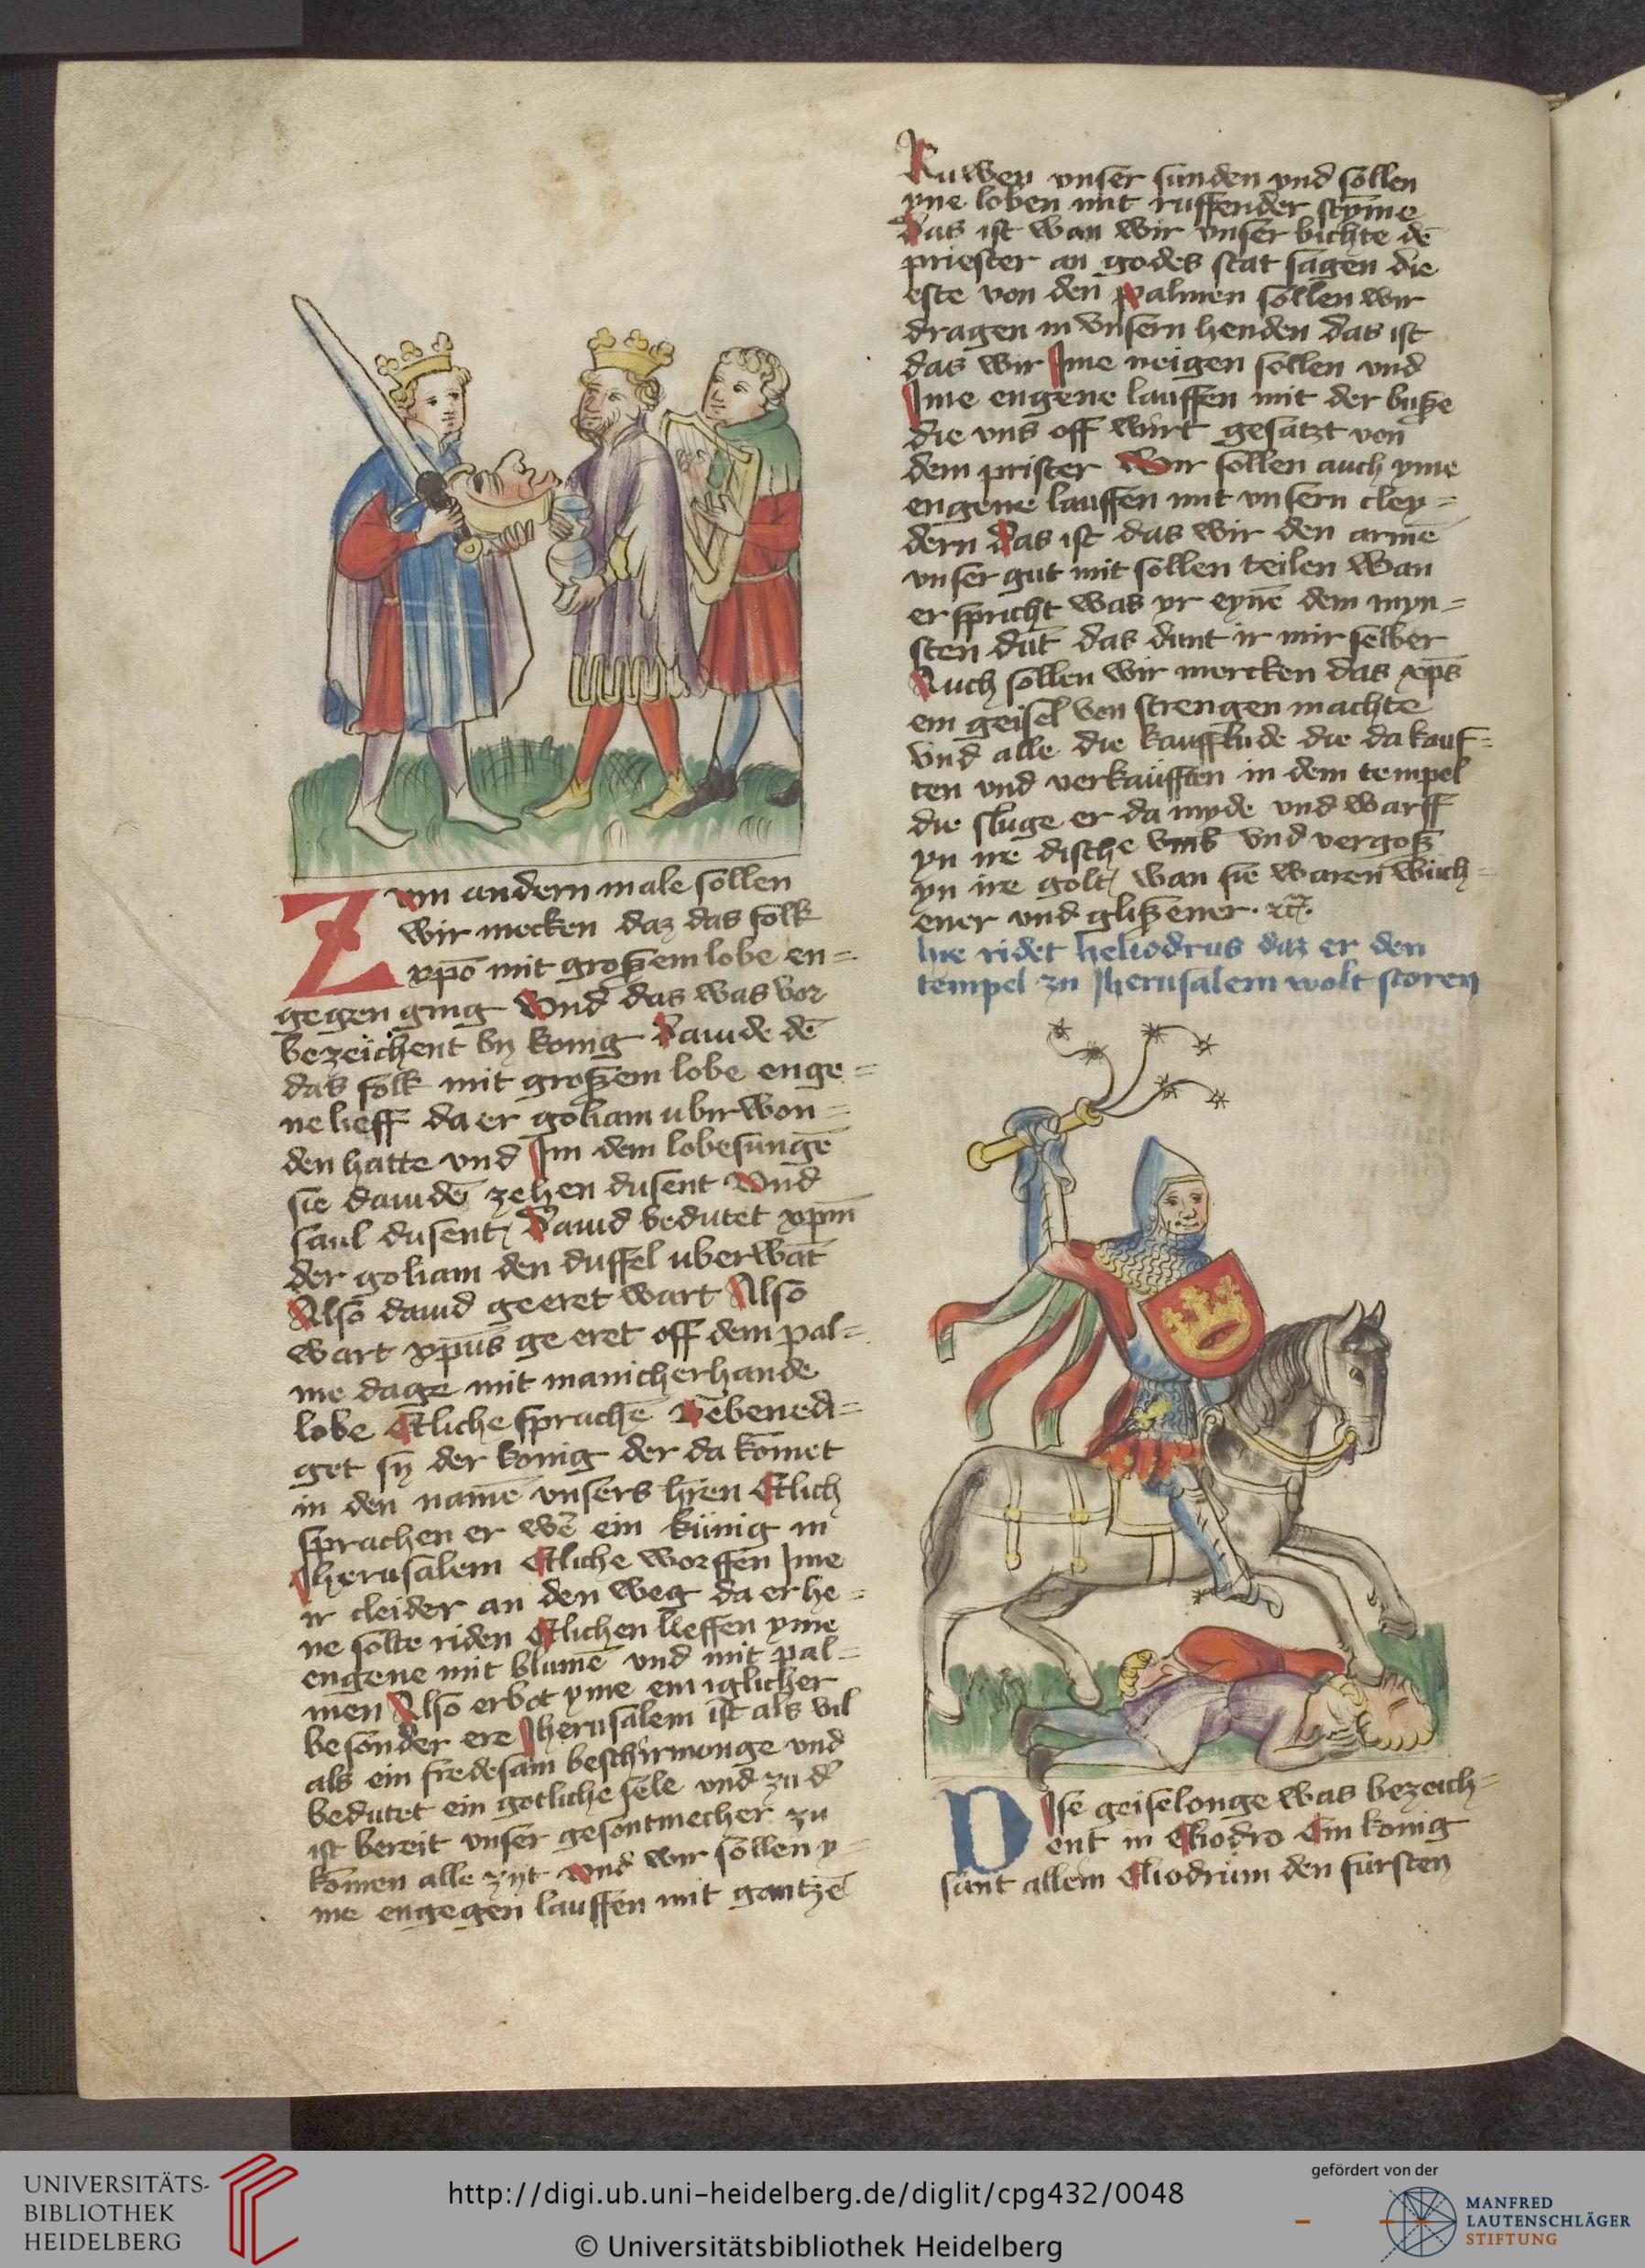 Zum andern male sollen
wir mecken daz das folk
xpō mit groszem lobe en=
gegen ging Vnd das was vor
bezeichent by konig Dauide dē
das folk mit groszem lobe enge=
ne lieff da er goliam ubirwon=
den hatte vnd Im dem lobesungē
sie dauidē zehen dusent Vnd
saul dusent / Dauid bedutet xpm̄
der goliam den duffel uberwāt
Also dauid geeret wart Also
wart xpūs ge eret off dem pal=
me dage mit manicherhande
lobe Etliche sprachē Gebenedi=
get sy der konig der da kōmet
in den namē vnsers hren Etlich
sprachen er wē ein künig in
Jherusalem Etliche worffen Ime
ir cleider an den weg da er he=
ne solte riden Etlichen lieffen yme
engene mit blumē vnd mit pal=
men Also erbot yme ein iglicher
besonder ere Jherusalem ist als vil
als ein fredesam beschirmonge vnd
bedutet ein gotliche sele vnd zu d'
ist bereit vnser gesontmecher zu
kōmen alle zyt vnd wir sollen y=
me engegen lauffen mit gantzē
Ruwen vnser sunden vnd sollen
yne loben mit ruffender stȳme
Das ist wan wir vnser bichte dē
priester an godes stat sagen die
este von den palmen sollen wir
dragen in vnsern henden das ist
das wir Ime neigen sollen vnd
Ime engene lauffen mit der busze
die vns off wirt gesatzt von
dem prister Wir sollen auch yme
engene lauffen mit vnsern cley=
dern Das ist das wir den armē
vnser gut mit sollen teilen Wan
er spricht was yr eynē dem myn=
sten dut das dunt ir mir selber
Auch sollen wir mercken das xp̄s
ein geisel von strengen machte
vnd alle die kaufflude die da kauf=
ten vnd verkaufften in dem tempel
die sluge er da myde vnd warff
yn ire dische vmb vnd vergosz
yn ire golt / wan sie waren wuch=
ener vnd gliszener · rc̄ ·
hie ridet heliodrus daz er den
tempel zu Jherusalem wolt storen
Dise geiselonge was bezeich=
ent in Eliodro Ein konig
sant allein Eliodrum den fursten
UNIVERSITÄTS-
BIBLIOTHEK
HEIDELBERG
http://digi.ub.uni-heidelberg.de/diglit/cpg432/0048
© Universitätsbibliothek Heidelberg
gefördert von der
MANFRED
LAUTENSCHLÄGER
STIFTUNG